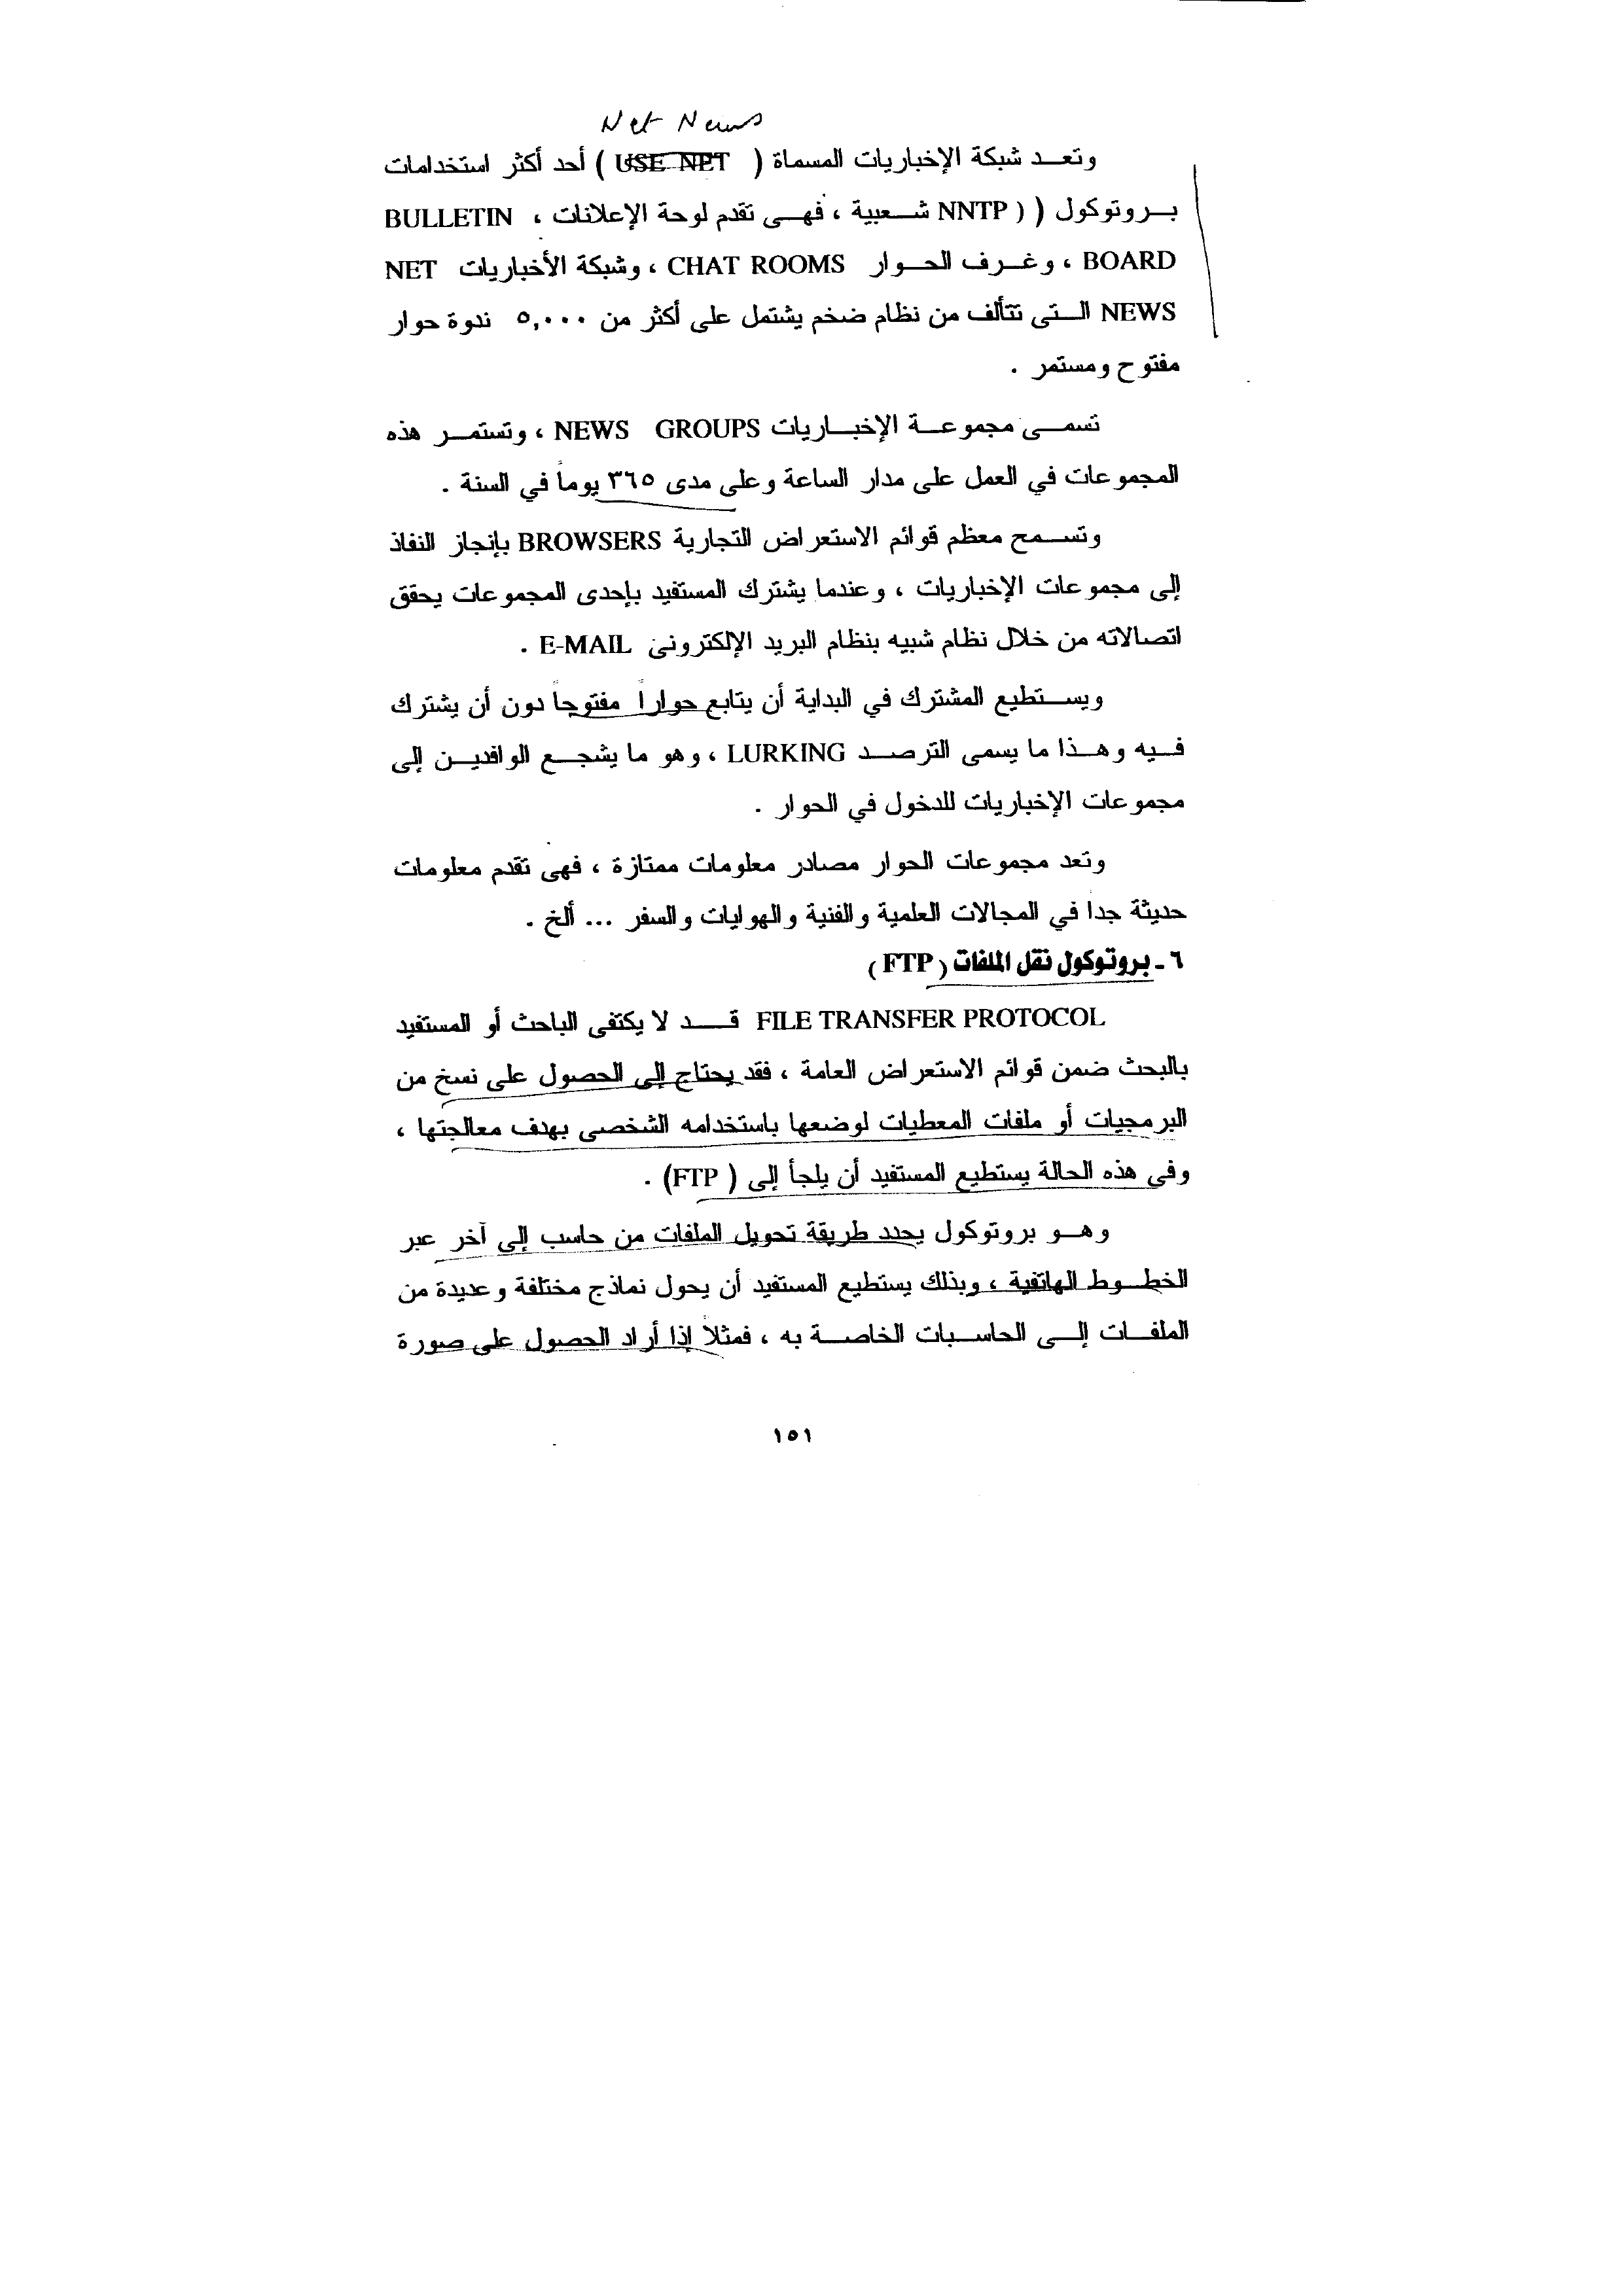 Net News
وتعد شبكة الإخباريات المسماة ( USE NET ) أحد أكثر استخدامات
بروتوكول ( ( NNTP شعبية ، فهى تقدم لوحة الإعلانات ، BULLETIN
BOARD ، وغرف الحوار CHAT ROOMS ، وشبكة الأخباريات NET
NEWS التى تتألف من نظام ضخم يشتمل على أكثر من ٥,٠٠٠ ندوة حوار
مفتوح ومستمر .
تسمى مجموعة الإخباريات NEWS GROUPS ، وتستمر هذه
المجموعات في العمل على مدار الساعة وعلى مدى ٣٦٥ يوماً في السنة .
وتسمح معظم قوائم الاستعراض التجارية BROWSERS بإنجاز النفاذ
إلى مجموعات الإخباريات ، وعندما يشترك المستفيد بإحدى المجموعات يحقق
اتصالاته من خلال نظام شبيه بنظام البريد الإلكترونى E-MAIL .
ويستطيع المشترك في البداية أن يتابع حواراً مفتوحاً دون أن يشترك
فيه وهذا ما يسمى الترصد LURKING ، وهو ما يشجع الوافدين إلى
مجموعات الإخباريات للدخول في الحوار .
وتعد مجموعات الحوار مصادر معلومات ممتازة ، فهى تقدم معلومات
حديثة جداً في المجالات العلمية والفنية والهوايات والسفر ... ألخ .
٦ ـ بروتوكول نقل الملفات ( FTP )
FILE TRANSFER PROTOCOL قد لا يكتفى الباحث أو المستفيد
بالبحث ضمن قوائم الاستعراض العامة ، فقد يحتاج إلى الحصول على نسخ من
البرمجيات أو ملفات المعطيات لوضعها باستخدامه الشخصى بهدف معالجتها ،
وفى هذه الحالة يستطيع المستفيد أن يلجأ إلى ( FTP) .
وهو بروتوكول يحدد طريقة تحويل الملفات من حاسب إلى آخر عبر
الخطوط الهاتفية ، وبذلك يستطيع المستفيد أن يحول نماذج مختلفة وعديدة من
الملفات إلى الحاسبات الخاصة به ، فمثلاً إذا أراد الحصول على صورة
١٥١